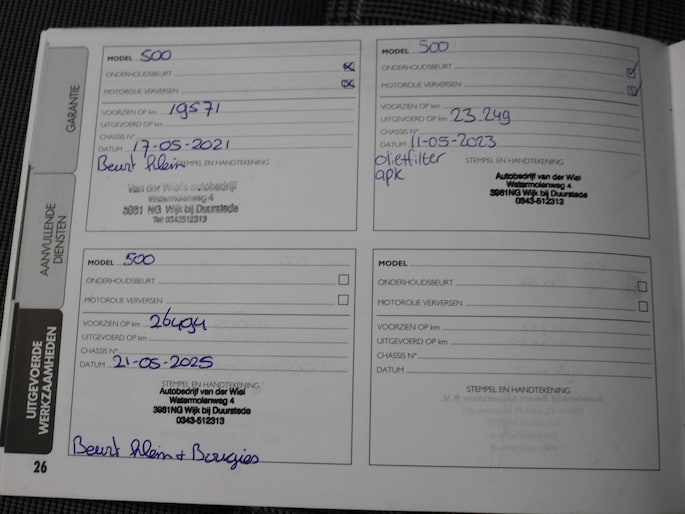 GARANTIE
AANVULLENDE
DIENSTEN
UITGEVOERDE
WERKZAAMHEDEN
26
MODEL 500
ONDERHOUDSBEURT
MOTOROLIE VERVERSEN
VOORZIEN OP km 19571
UITGEVOERD OP km
CHASSIS N°
DATUM 17-05-2021
Beurt klein STEMPEL EN HANDTEKENING
Van der Wiel's autobedrijf
Watermolenweg 4
3961 NG Wijk bij Duurstede
Tel: 0343512313
MODEL 500
ONDERHOUDSBEURT
MOTOROLIE VERVERSEN
VOORZIEN OP km
UITGEVOERD OP km 23.249
CHASSIS N°
DATUM 11-05-2023
oliefilter STEMPEL EN HANDTEKENING
apk
Autobedrijf van der Wiel
Watermolenweg 4
3961NG Wijk bij Duurstede
0343-512313
MODEL 500
ONDERHOUDSBEURT
MOTOROLIE VERVERSEN
VOORZIEN OP km 26494
UITGEVOERD OP km
CHASSIS N°
DATUM 21-05-2025
STEMPEL EN HANDTEKENING
Autobedrijf van der Wiel
Watermolenweg 4
3961NG Wijk bij Duurstede
0343-512313
Beurt klein + Bougies
MODEL
ONDERHOUDSBEURT
MOTOROLIE VERVERSEN
VOORZIEN OP km
UITGEVOERD OP km
CHASSIS N°
DATUM
STEMPEL EN HANDTEKENING